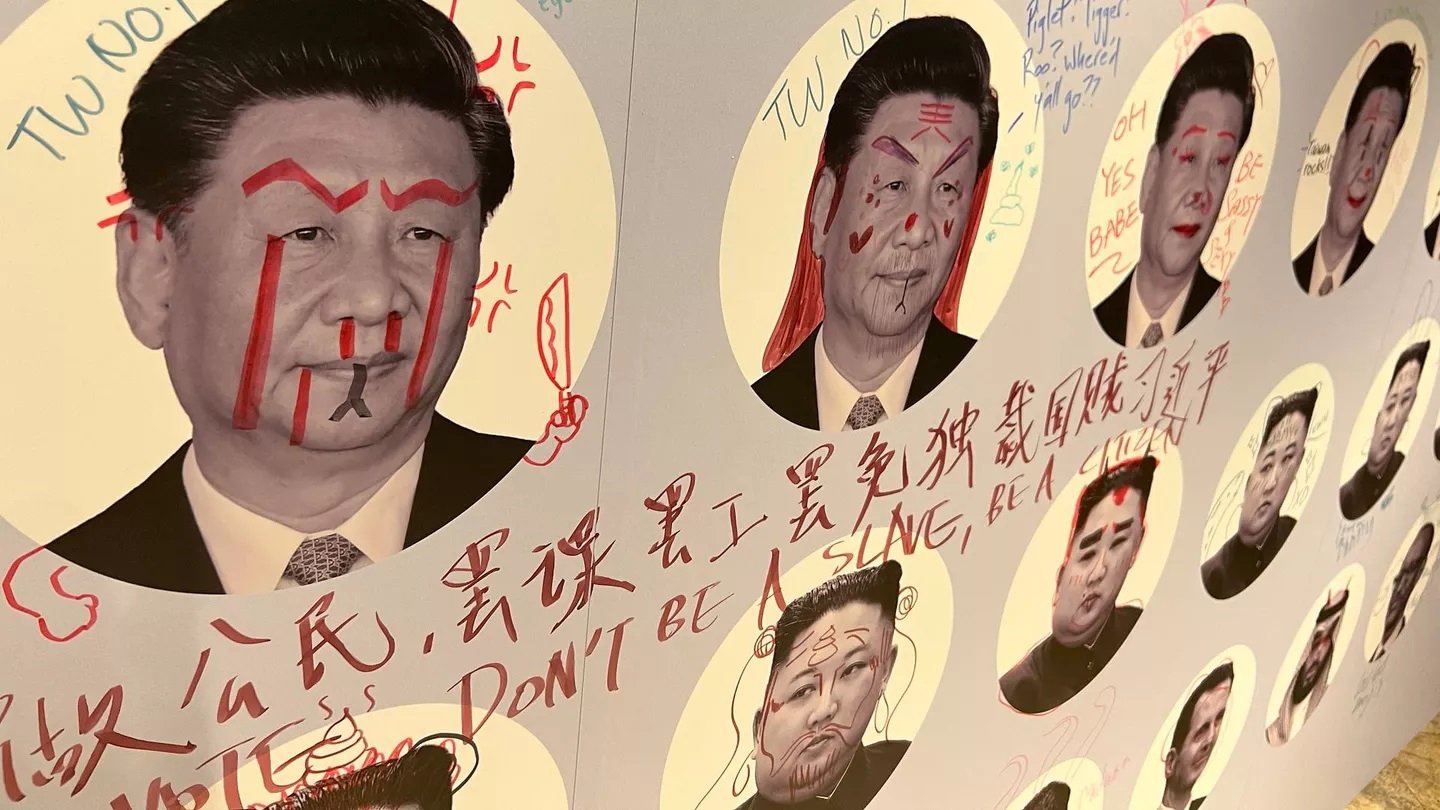 TW NO.1
TW NO.1
Piglet? Tigger?
Roo? Where'd
y'all go??
OH
YES
BABE
BE
Sassy
&
Sexy
Taiwan
rocks!!
做公民,罢课罢工罢免独裁国贼习近平
VOTE
DON'T BE A SLAVE, BE A CITIZEN